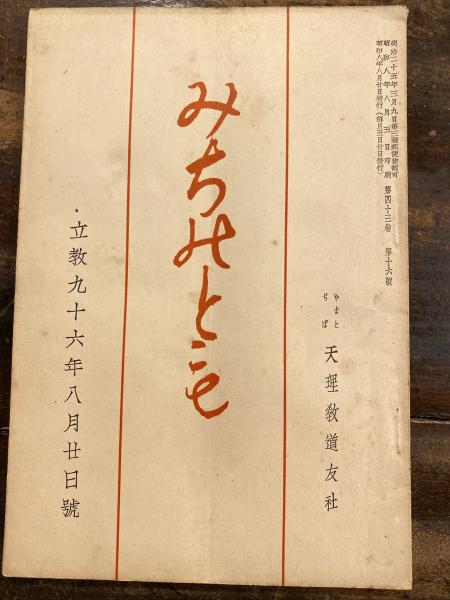 明治二十五年三月九日第三種郵便物認可
昭和八年八月五日印刷
昭和八年八月廿日發行(毎月五日廿日發行)
第四十三卷 第十六號
やまと
ぢば
天理教道友社
みちのとも
立教九十六年八月廿日號